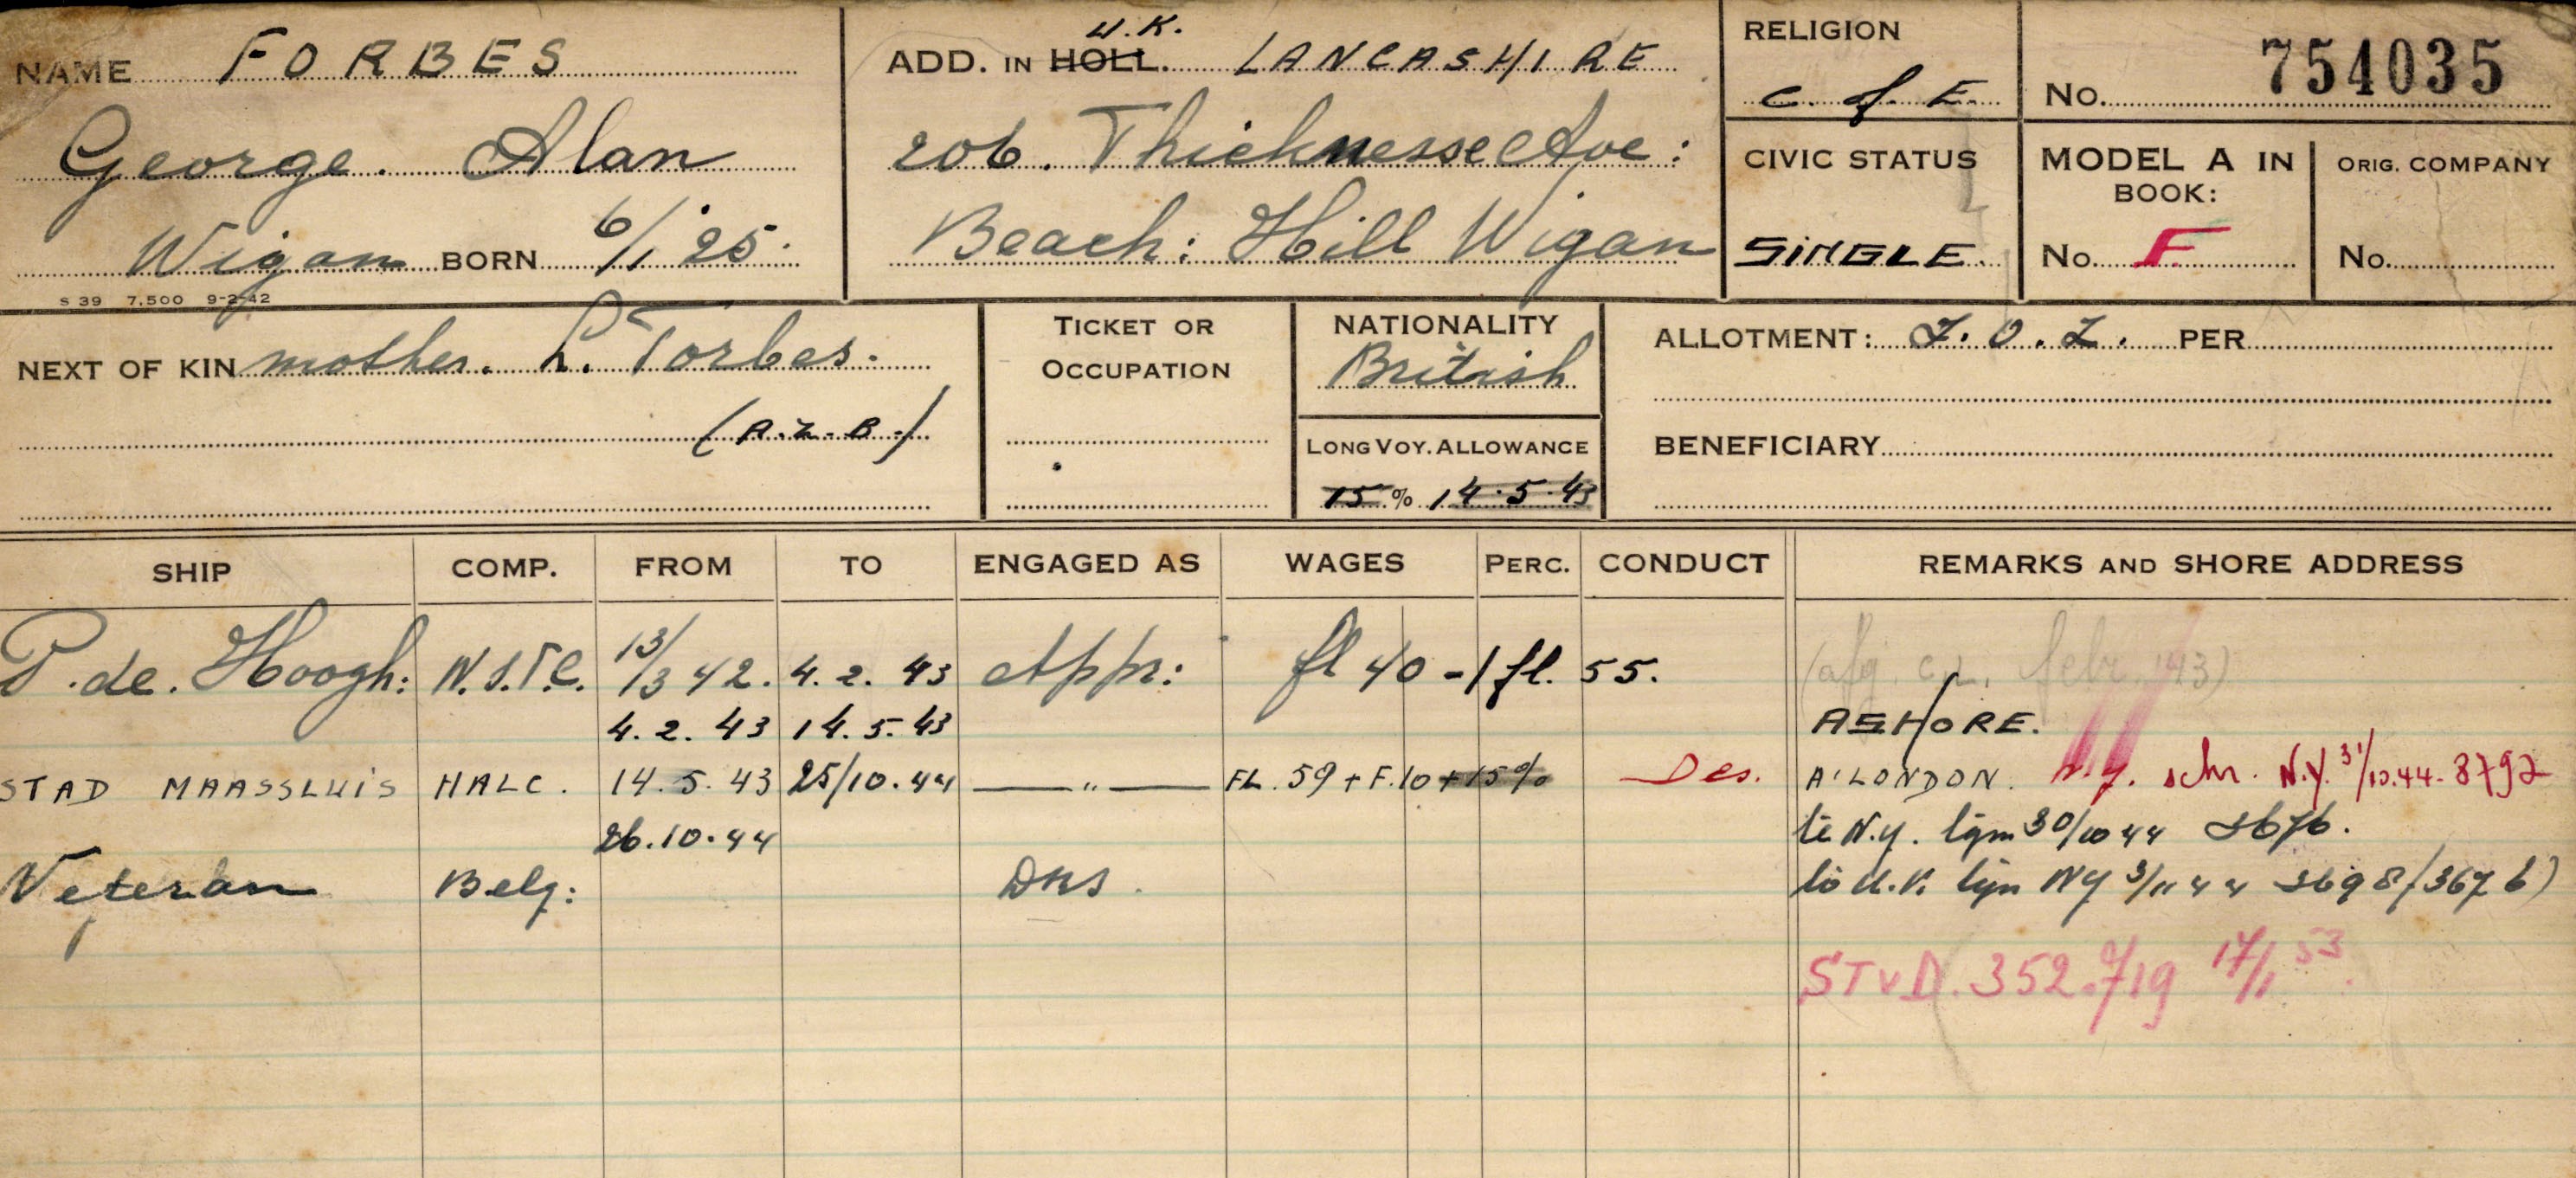 NAME FORBES
George. Alan
Wigan BORN 6/1 '25.
S 39 7,500 9-2-42
ADD. IN HOLL. U.K. LANCASHIRE
206. Thicknesse Ave:
Beach: Hill Wigan
RELIGION
C. of E.
No. 754035
CIVIC STATUS
SINGLE.
MODEL A IN BOOK:
No. F
ORIG. COMPANY
No.
NEXT OF KIN mother. L. Forbes.
(A.Z.B.)
TICKET OR OCCUPATION
NATIONALITY
British
LONG VOY. ALLOWANCE
15 % 14.5.43
ALLOTMENT: Z.O.Z. PER
BENEFICIARY
SHIP COMP. FROM TO ENGAGED AS WAGES PERC. CONDUCT REMARKS AND SHORE ADDRESS
P. de. Hoogh: N.S.T.C. 13/3 42. 4. 2. 43 Appr: fl 40 - / fl. 55. febr. '43)
4. 2. 43 14. 5. 43 ASHORE.
STAD MAASSLUIS HALC. 14. 5. 43 25/10. 44 — " — FL. 59 + F. 10 + 15% Des. A'LONDON. N.Y. schr. N.Y. 31/10.44. 8792
26.10.44 te N.Y. tgm 30/10 44 3676.
Veteran Belg: DKS. NY 3/11 44 3698/3676)
STvD. 352.719 17/1 53.